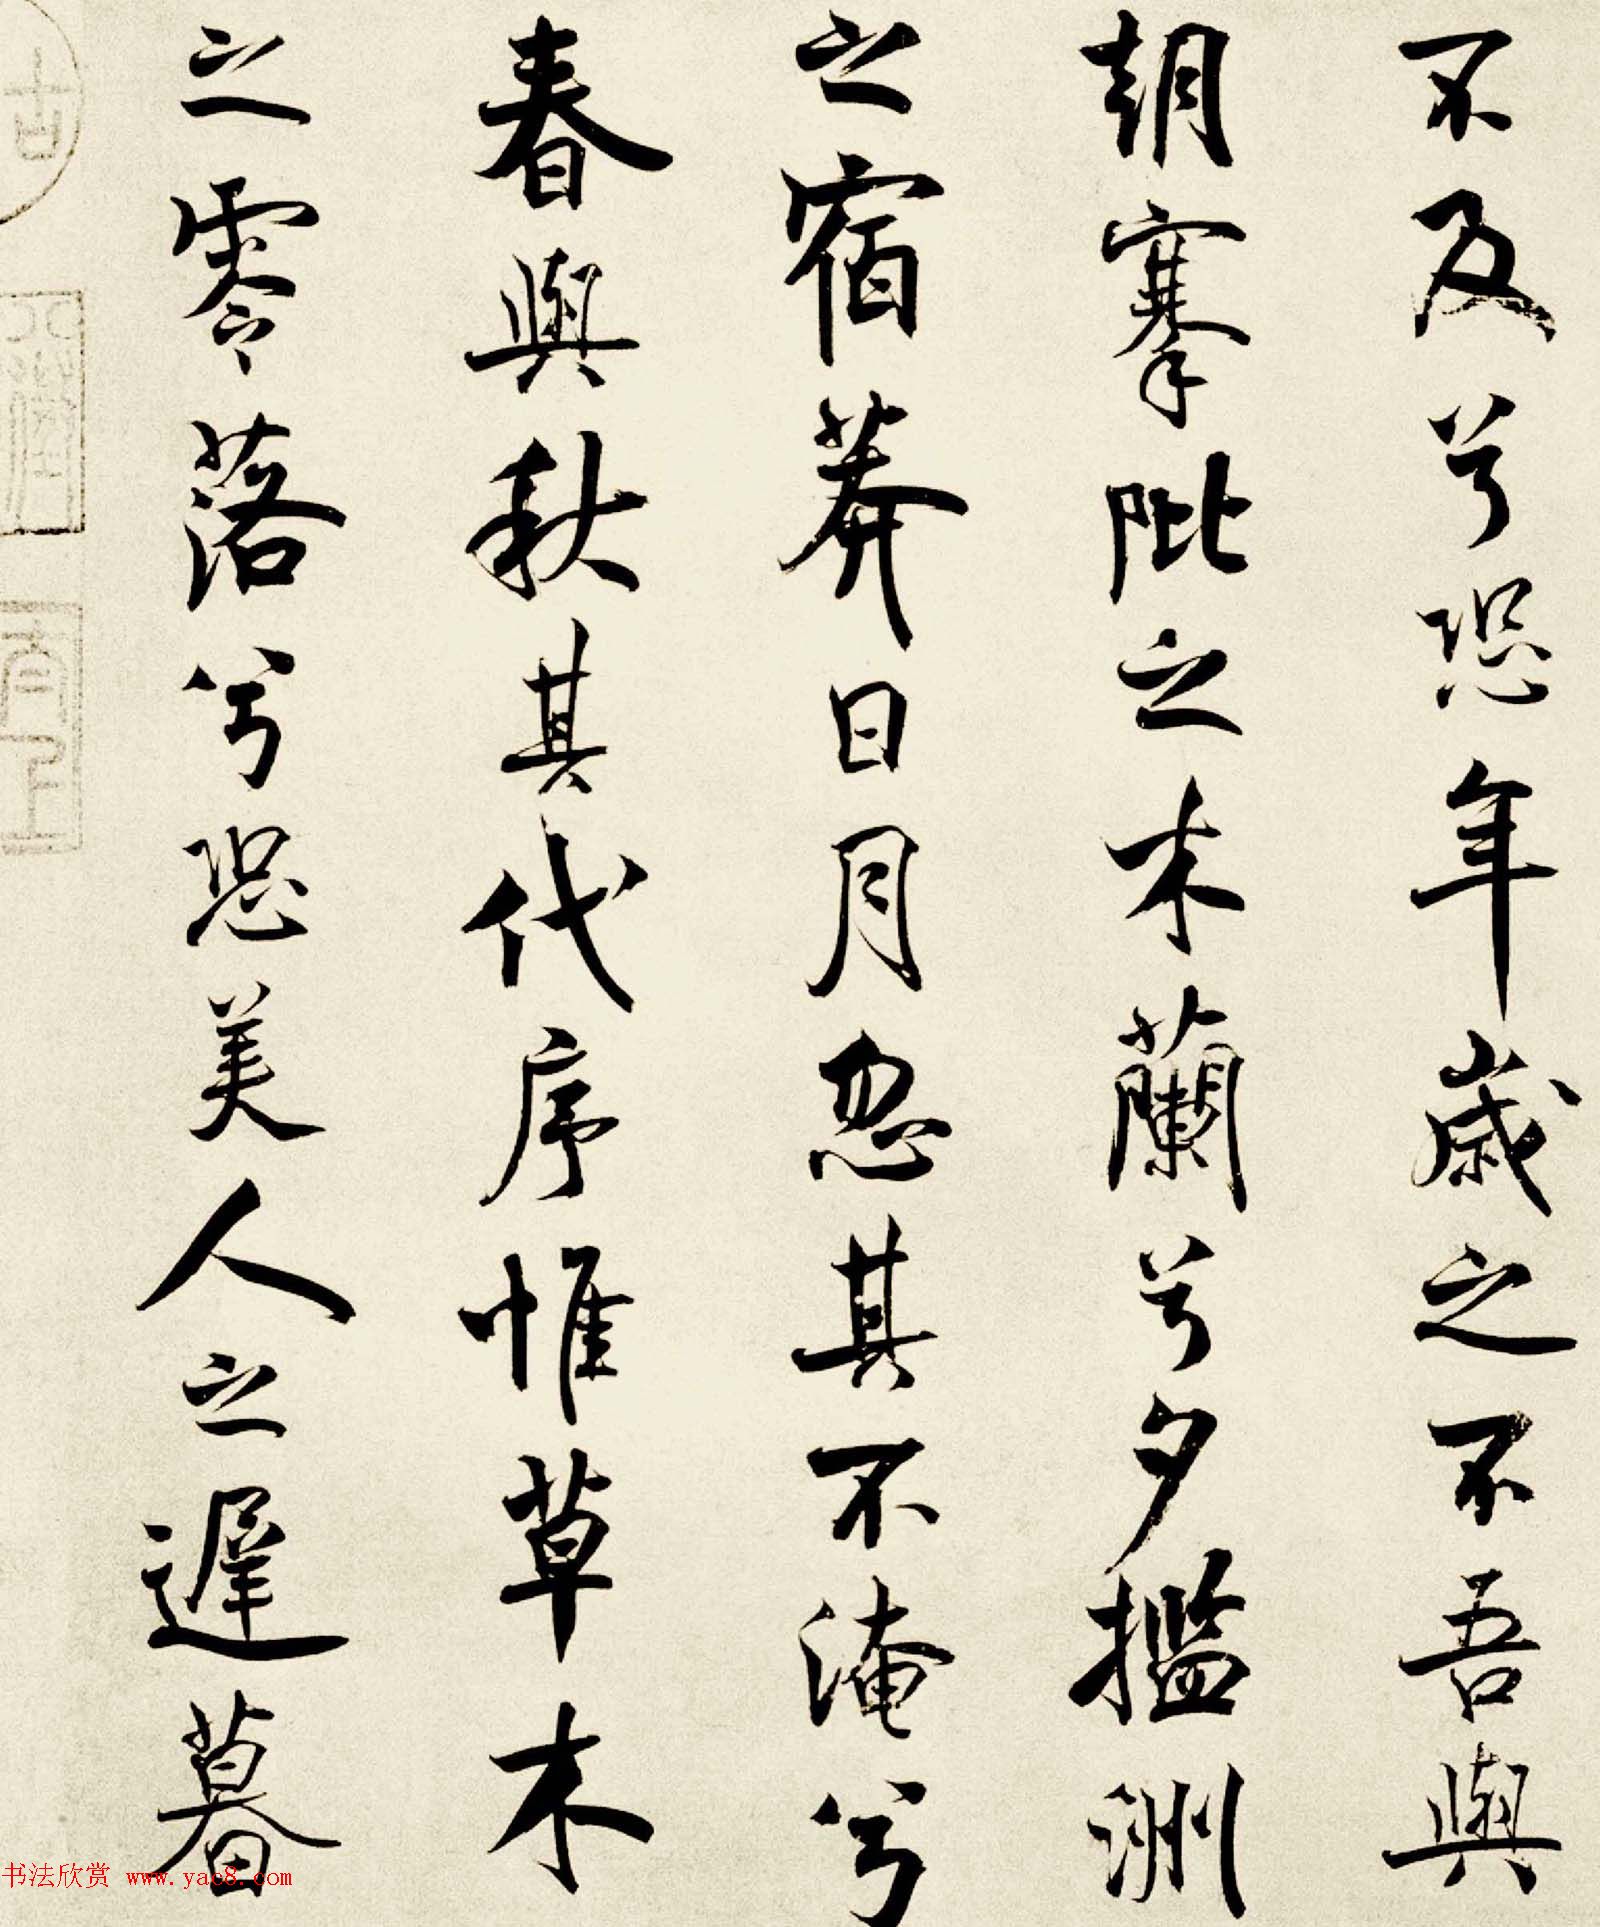 不及兮恐年歲之不吾與
朝搴阰之木蘭兮夕擥洲
之宿莽日月忽其不淹兮
春與秋其代序惟草木
之零落兮恐美人之遲暮
书法欣赏 www.yac8.com